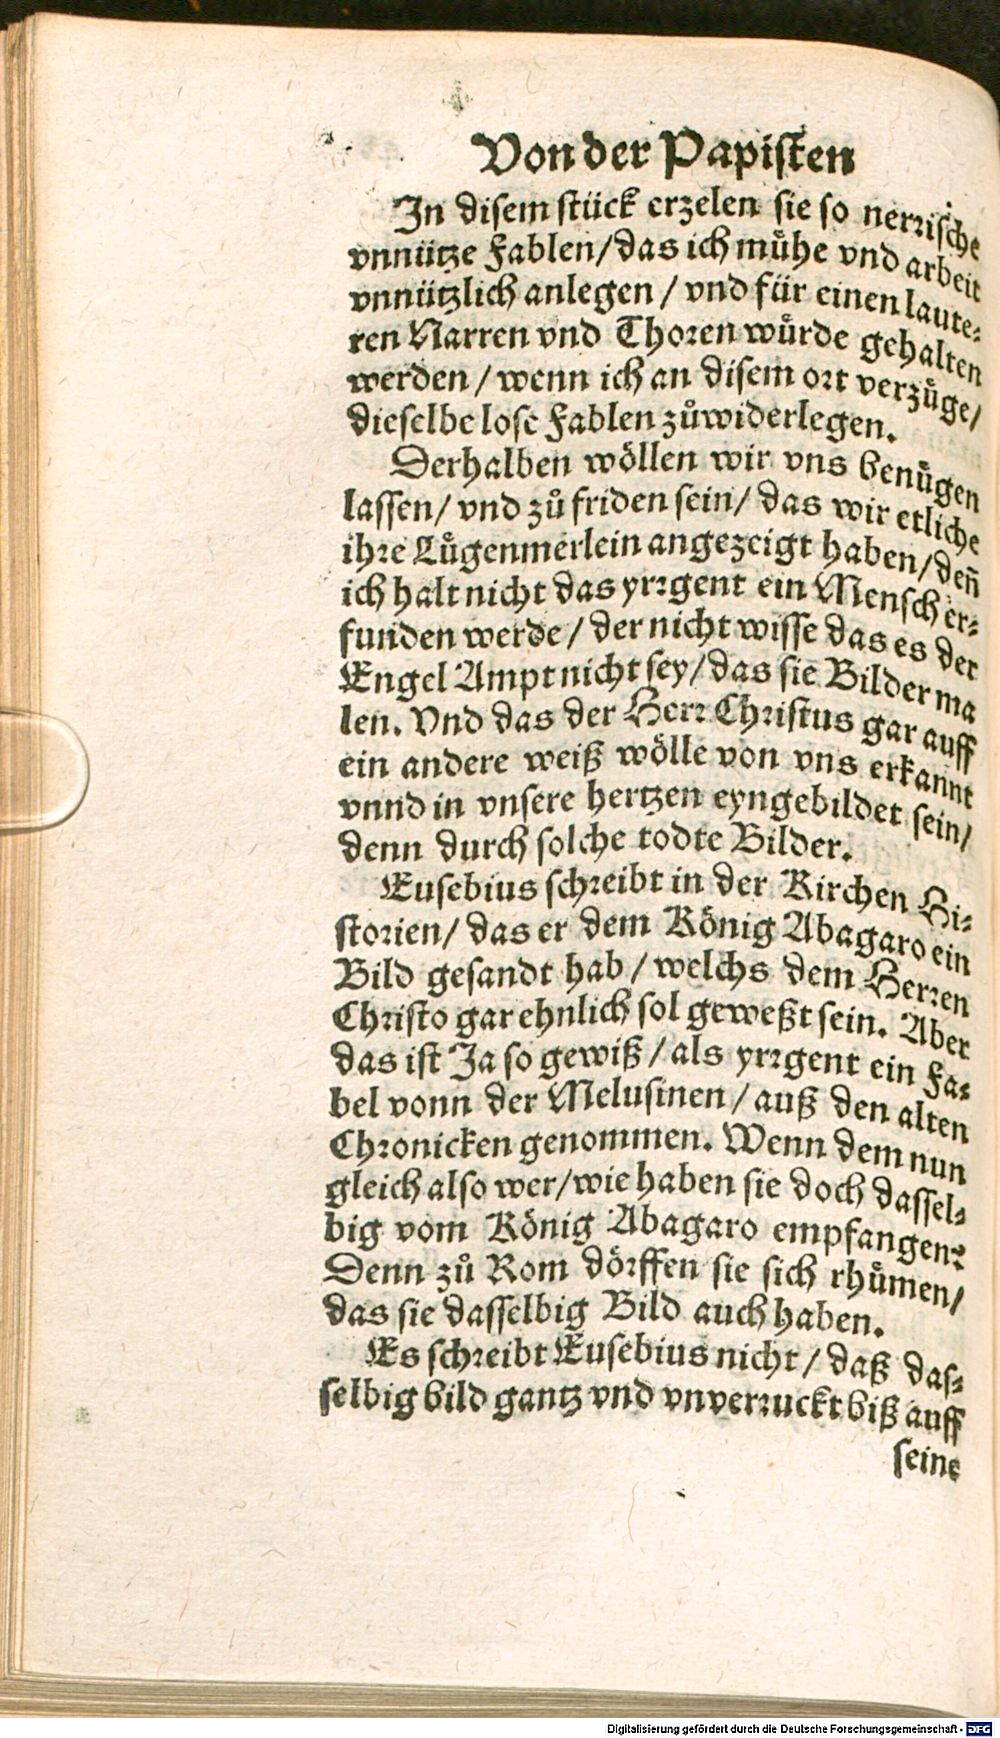 Von der Papisten
In disem stück erzelen sie so nerrische
vnnütze Fablen/das ich mühe vnd arbeit
vnnützlich anlegen / vnd für einen laute-
ren Narren vnd Thoren würde gehalten
werden / wenn ich an disem ort verzüge/
dieselbe lose Fablen zůwiderlegen.
Derhalben wöllen wir vns benügen
lassen/ vnd zů friden sein/ das wir etliche
ihre Lügenmerlein angezeigt haben/ deñ
ich halt nicht das yrrgent ein Mensch er-
funden werde / der nicht wisse das es der
Engel Ampt nicht sey/ das sie Bilder ma
len. Vnd das der Herr Christus gar auff
ein andere weiß wölle von vns erkannt
vnnd in vnsere hertzen eyngebildet sein/
denn durch solche todte Bilder.
Eusebius schreibt in der Kirchen Hi-
storien/ das er dem König Abagaro ein
Bild gesandt hab / welchs dem Herren
Christo gar ehnlich sol geweßt sein. Aber
das ist Ja so gewiß / als yrrgent ein Fa-
bel vonn der Melusinen / auß den alten
Chronicken genommen. Wenn dem nun
gleich also wer/wie haben sie doch dassel-
big vom König Abagaro empfangen?
Denn zů Rom dörffen sie sich rhümen/
das sie dasselbig Bild auch haben.
Es schreibt Eusebius nicht / daß das-
selbig bild gantz vnd vnverruckt biß auff
seine
Digitalisierung gefördert durch die Deutsche Forschungsgemeinschaft - DFG